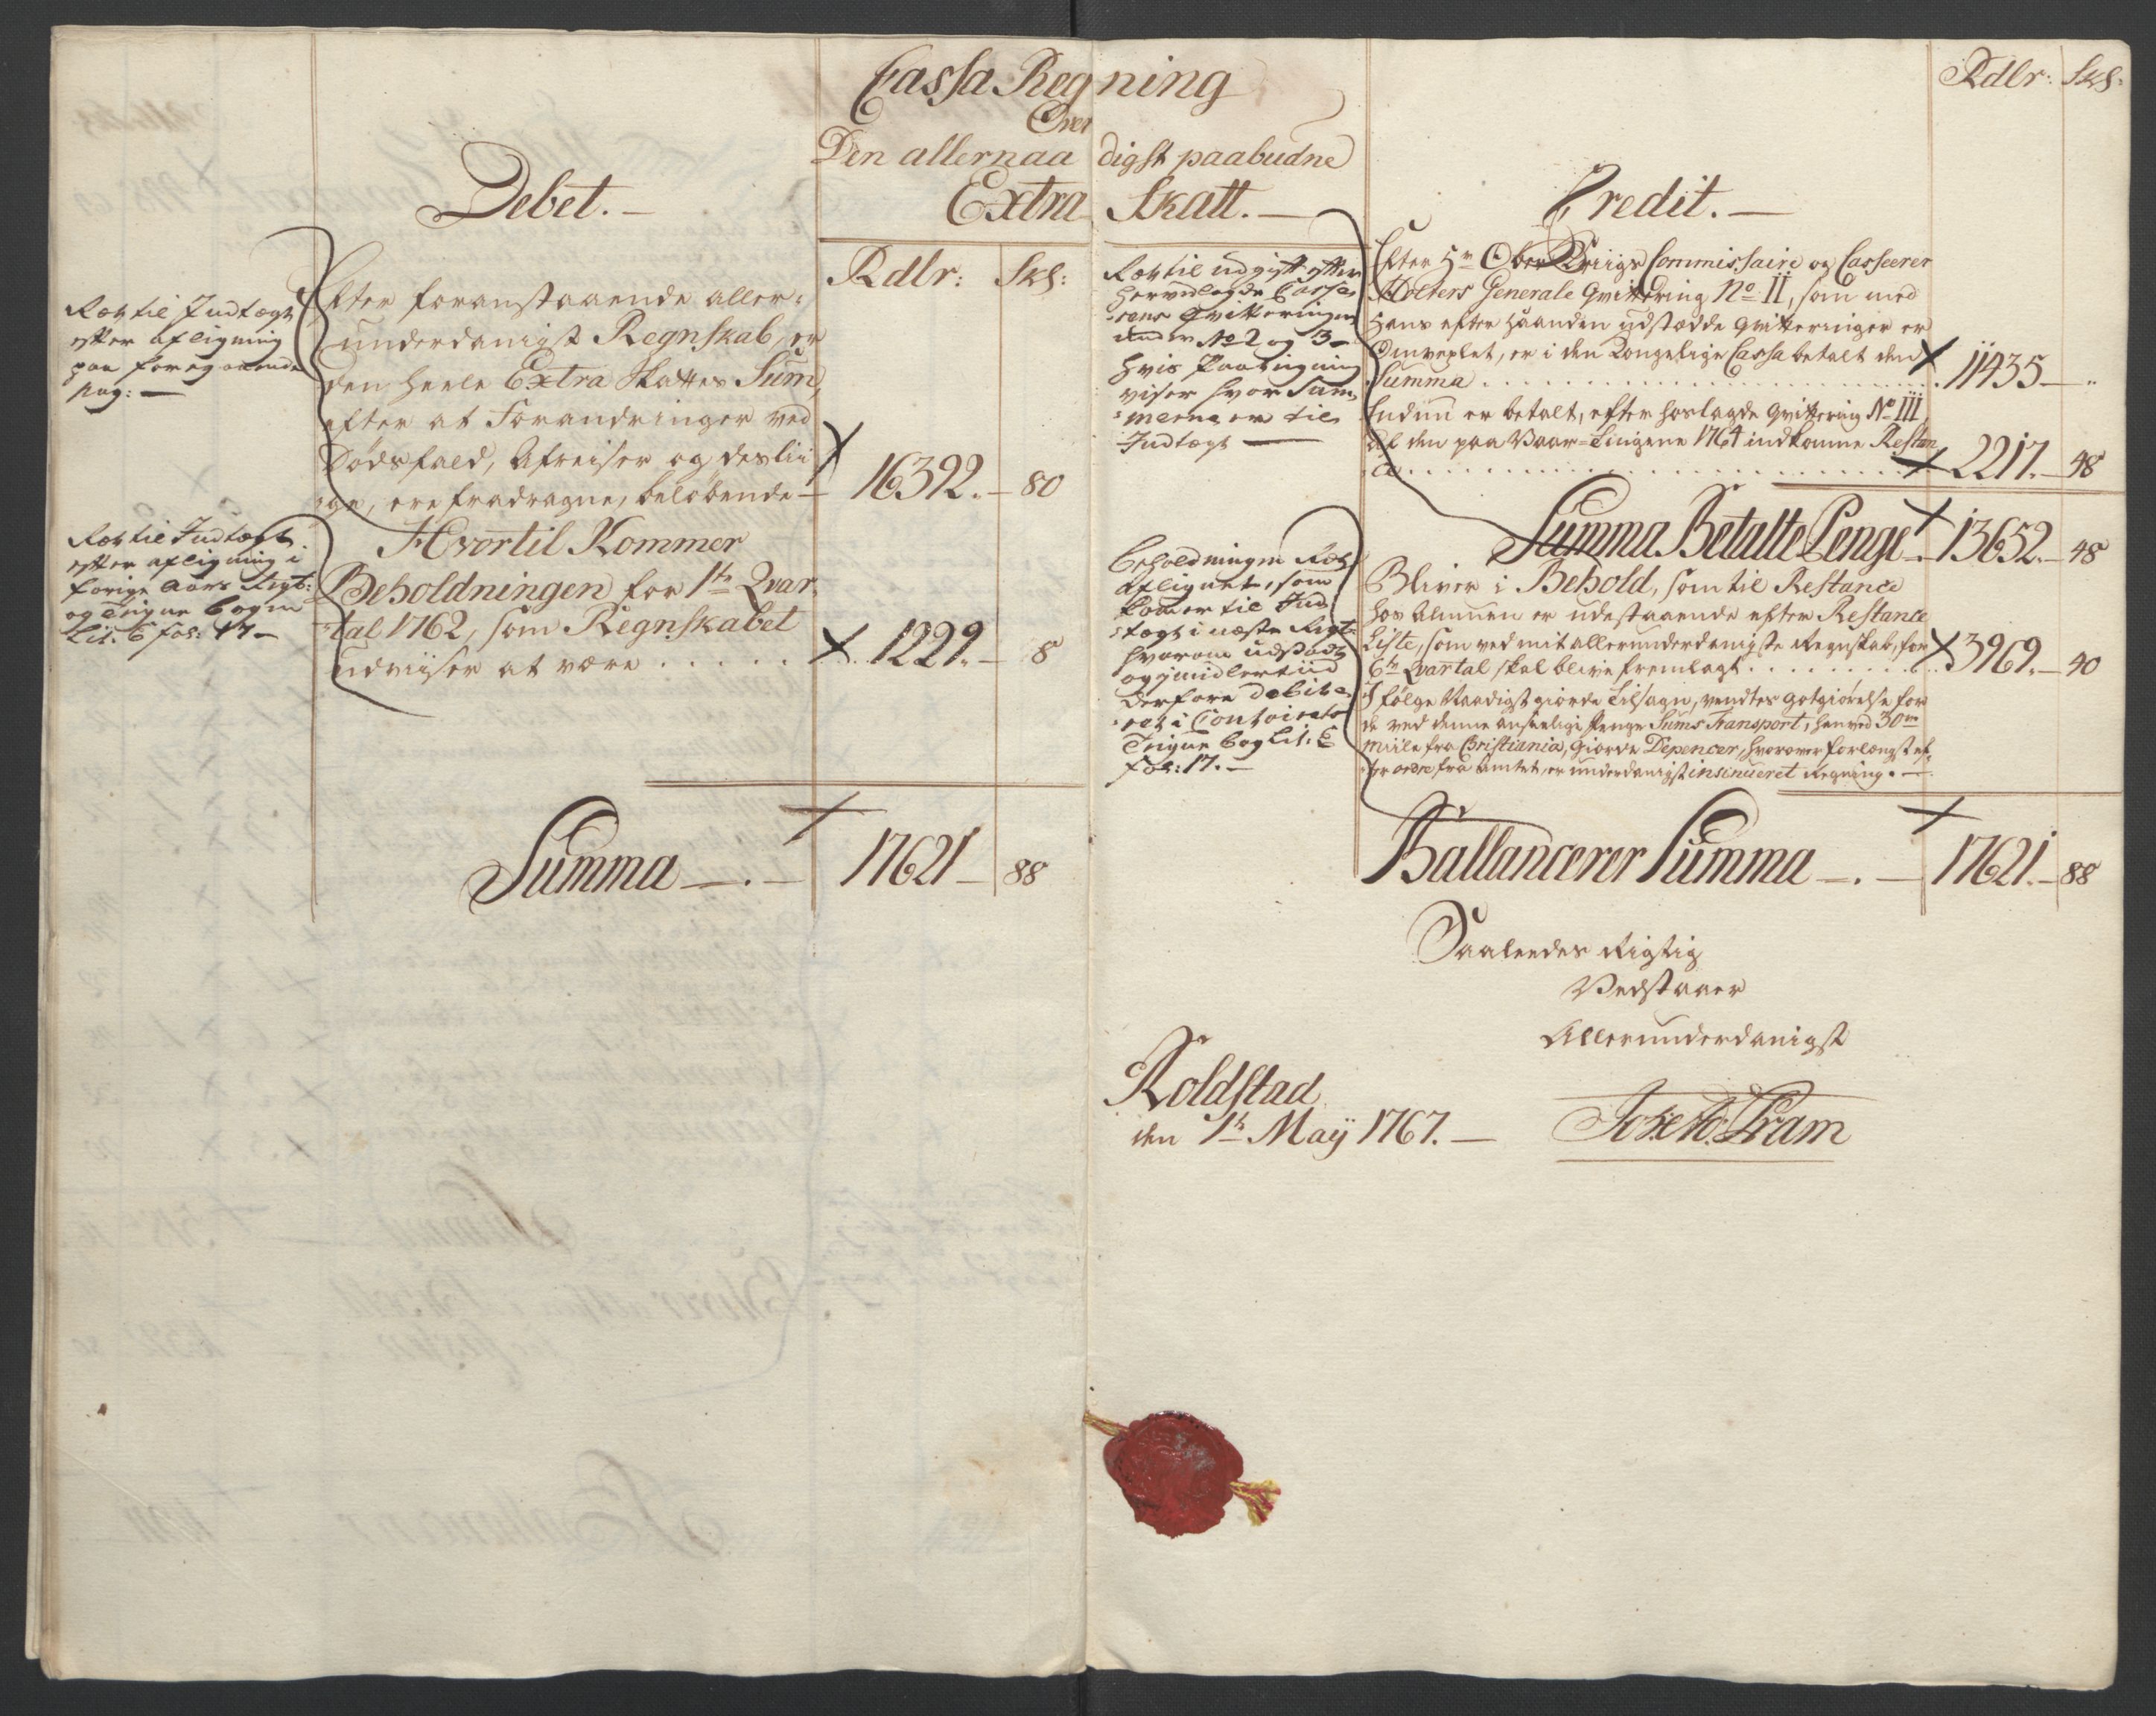 Cassa Regning
Over
Den allernaadigst paabudne
Extra Skatt.
Debet.
Rdlr: Skl:
Rigtil Indtægt
efter afligning
paa foregaaende
pag:
Efter foranstaaende aller-
underdanigst Regnskab, er
den heele Extra Skattes Sum,
efter at Forandringer ved
Dødsfald, Afreiser og deslii
ge, ere fradragne, beløbende 16392. 80
Hvortil Kommer
efter afligning i
forige Aars Regt:
og
Lit: C fol: 17
Beholdningen for 1te Qvar-
tal 1762, som Regnskabet
udviiser at være ..... 1229. 8
Summa 17621 88
Credit.
Rdlr: Skl:
udgift efter
hervedlagde Casse-
rens Qvitteringer
under No 2 og 3
hvis Paategning
viser hvor Sum-
merne er til
Indtægt
Efter Hr Ober Kriigs Commissaire og Casserer
Holters Generale Qvittering No II, som med
Hans efter haanden udstædde Qvitteringer er
, er i den Kongelige Cassa betalt den
Summa ..... 11435
Endnu er betalt, efter hoslagde Qvittering No III,
af den paa Vaar-Tingene 1764 indkomne Restan
ce ..... 2217. 48
Summa Betalte Penge 13652. 48
Beholdningen
aflignet, som
til Ind-
tægt i næste Regt:
hvorom udstædt
og imidlertiid
derfore debite-
ret i Contoirets
bog Lit: C
fol: 17.
Bliver i Behold, som til Restance
hos Almuen er udestaaende efter Restance
Liste, som ved mit allerunderdanigste Regnskab, for
6te Qvartal skal blive fremlagt ..... 3969. 40
I følge Naadigst giorde Tilsagn, ventes Gotgiørelse for
de ved denne anseelige Penge Sums Transport, henved 30ve
Miile fra Christiania, giorde Depencer, hvorover forlængst ef-
ter ordre fra Amtet, er underdanigst insinueret Regning.
Ballancerer Summa 17621. 88
Saaledes Rigtig
Vedstaaer
Allerunderdanigst
Koldstad
den 1te Maij 1767.
Pram